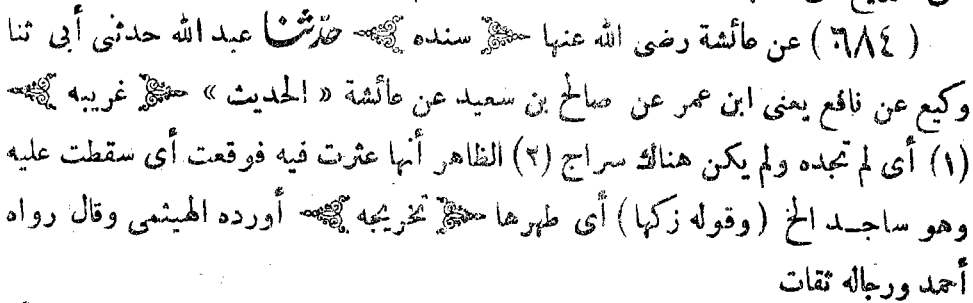 ( ٦٨٤ ) عن عائشة رضى الله عنها سنده حدثنا عبد الله حدثنى أبى ثنا
وكيع عن نافع يعنى ابن عمر عن صالح بن سعيد عن عائشة « الحديث » غريبه
(١) أى لم تجده ولم يكن هناك سراج (٢) الظاهر أنها عثرت فيه فوقعت أى سقطت عليه
وهو ساجد الخ (وقوله زكها) أى طهرها تخريجه أورده الهيثمى وقال رواه
أحمد ورجاله ثقات